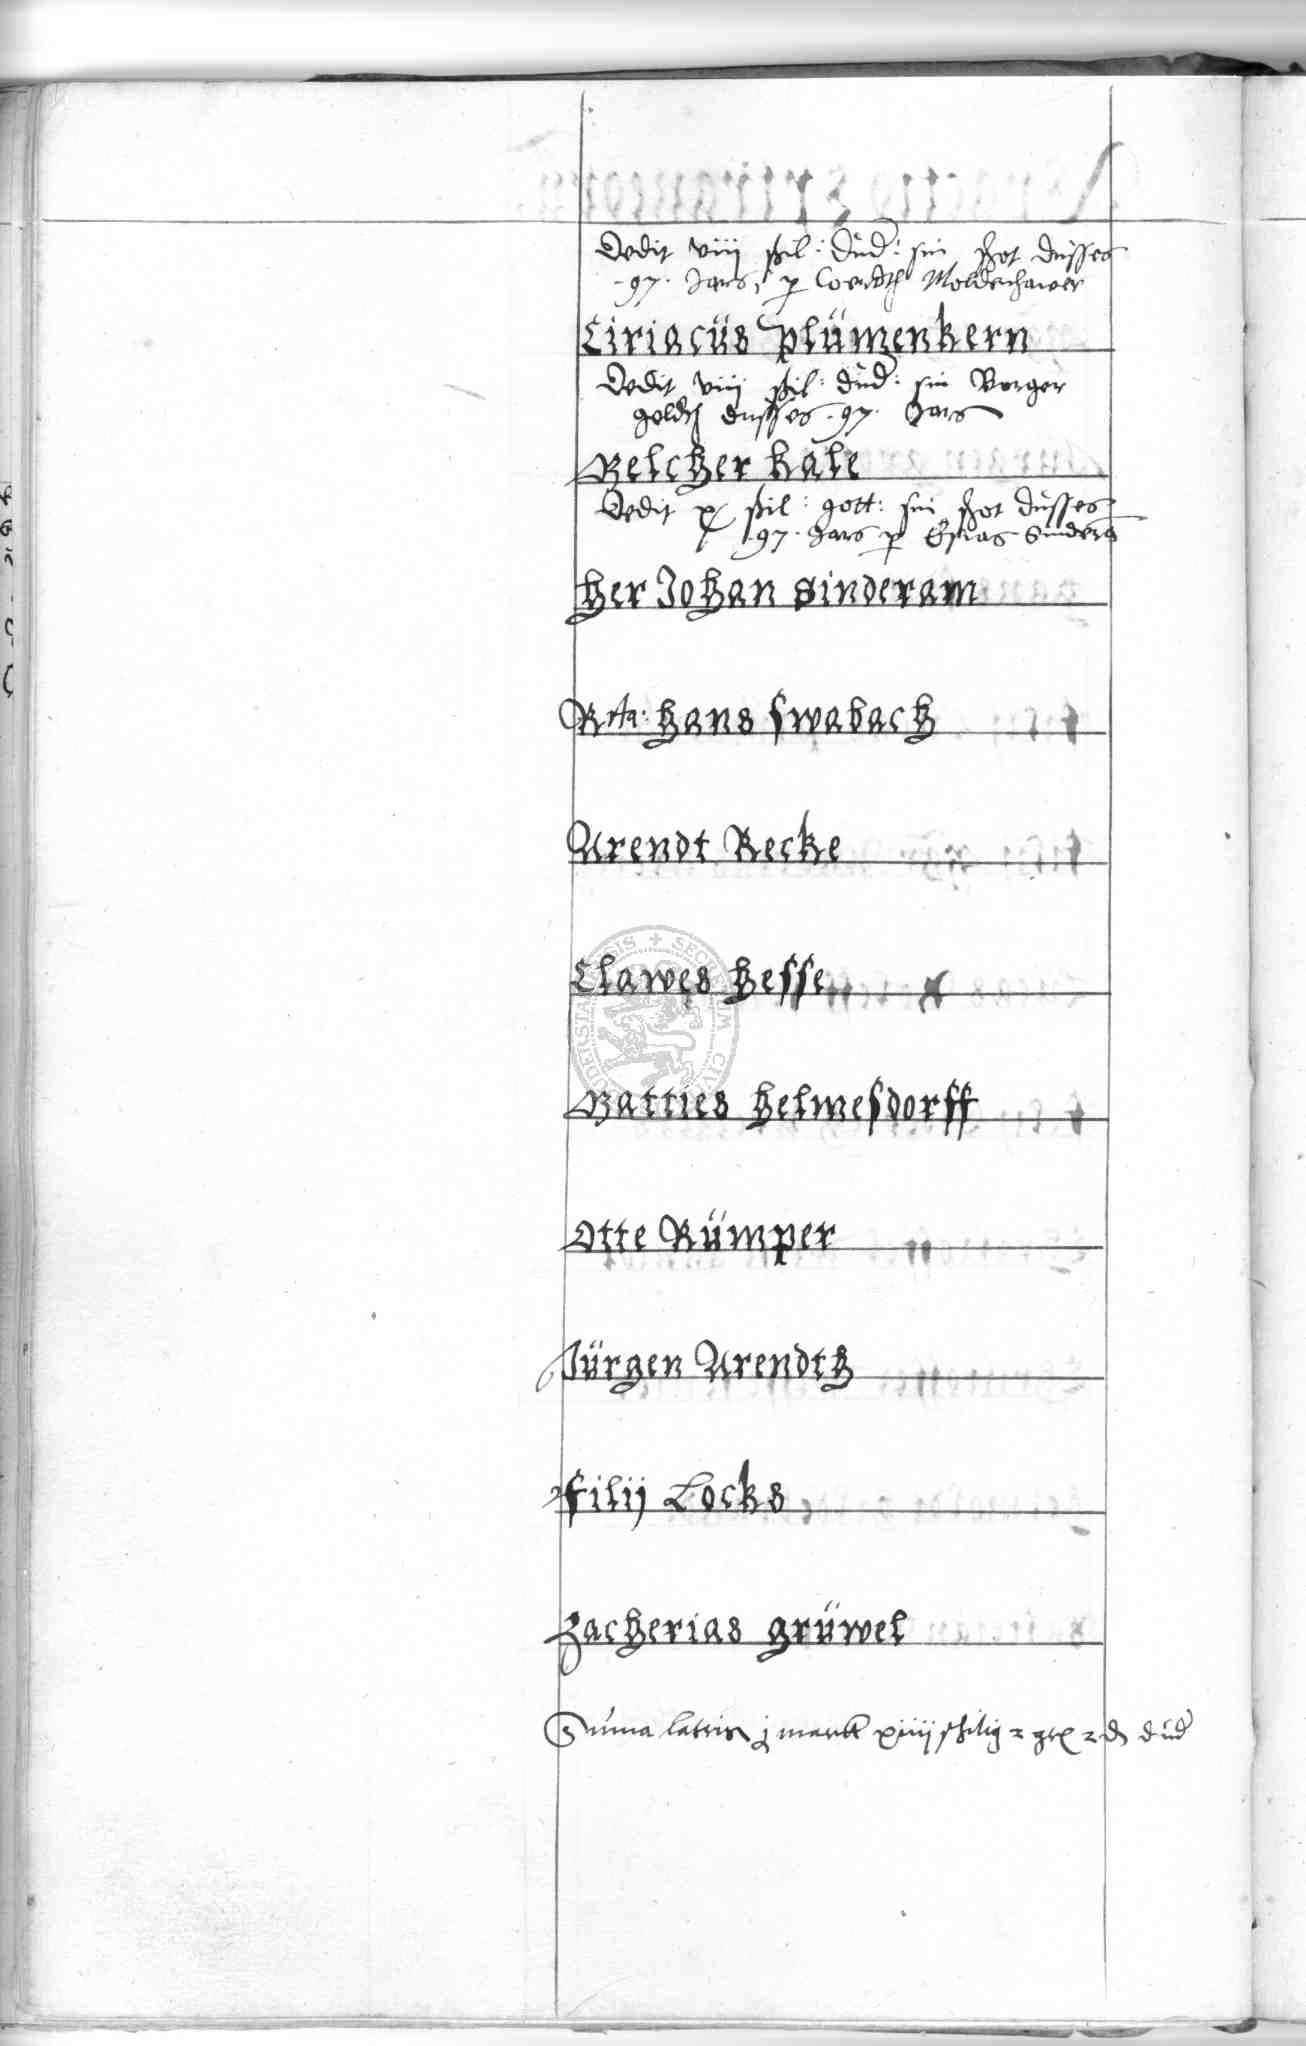 Dedit viij ßil: dud: sin schot dusses
97. Jars, p Coerdth Moldenhawer
Ciriacüs plümenkern
Dedit viij ßil: dud: sin Borger
geldh dusses .97. Jars
Melcher hale
Dedit x ßil: gott: sin schot dusses
.97. Jars p Esias Sinderā
her Johan Sinderam
Rcta: hans swabach
Arendt Recke
Clawes hesse
Matties helmesdorff
Otte Rümper
Jürgen Arendth
filij Locks
Zacherias grüwel
Suma lateris j marck xiiij schilig 2 2 dud
SECRETUM CIVI DUDERSTADENSIS